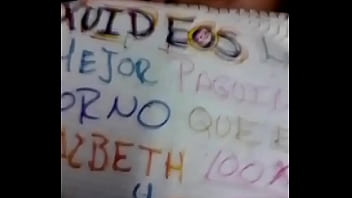 VIDEOS L
MEJOR PAGUIN
ORNO QUE E
ZBETH 100%